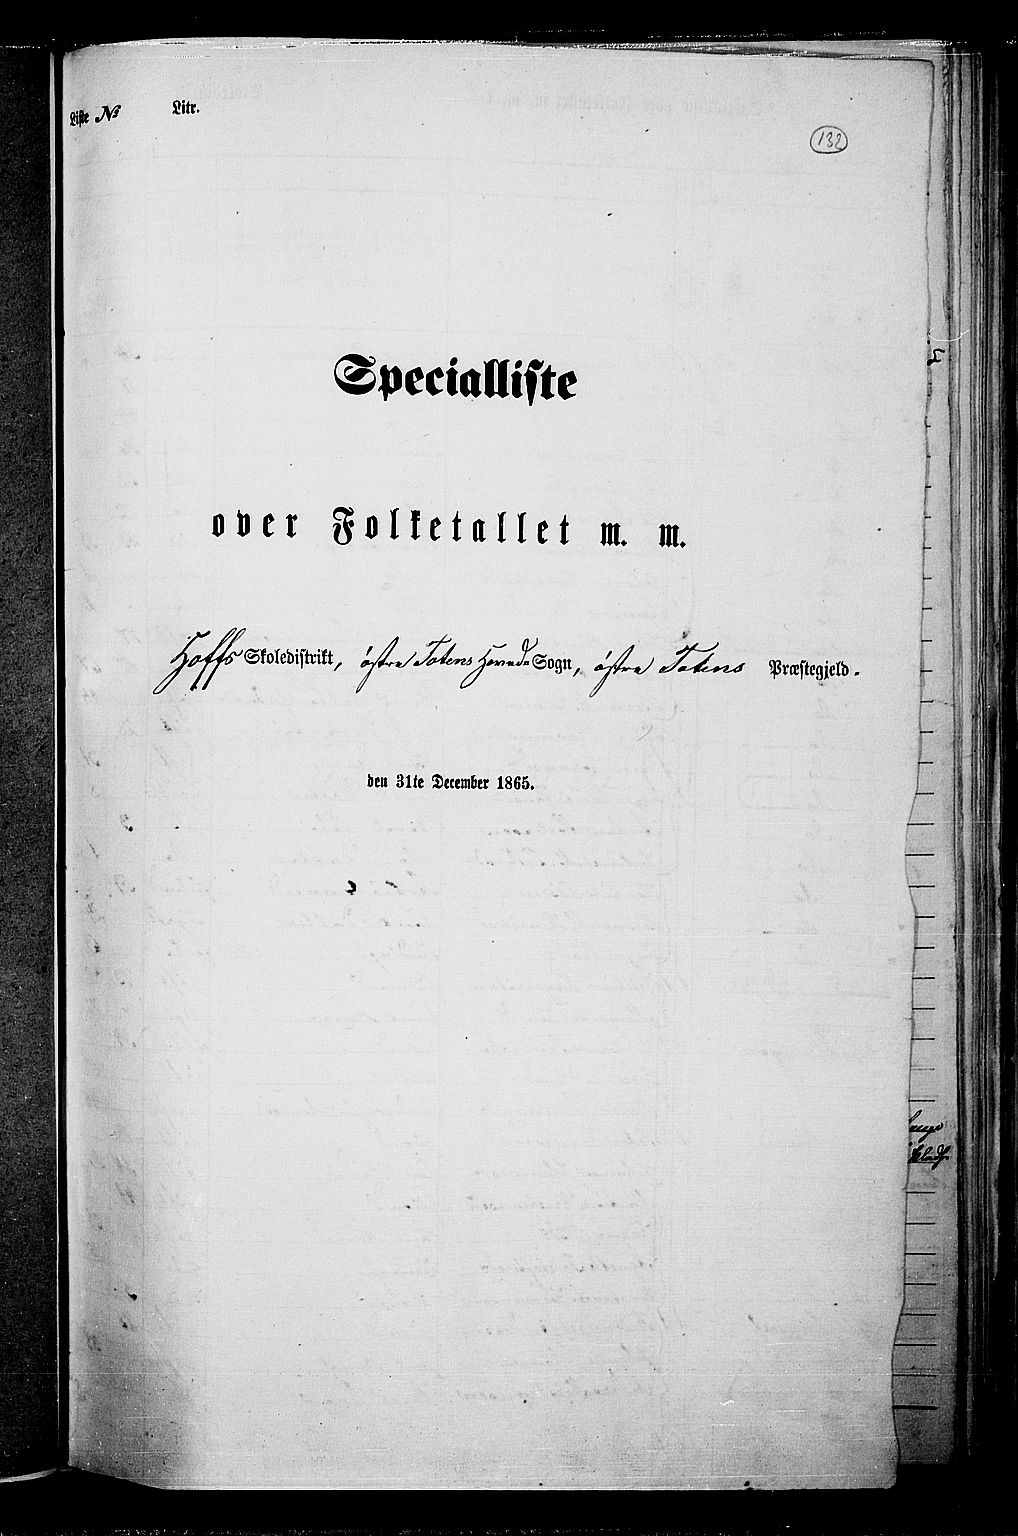 Liste № Litr.
132
Specialliste
over Folketallet m. m.
Hoffs Skoledistrikt, østre Totens Hoveds Sogn, østre Totens Præstegjeld.
den 31te December 1865.